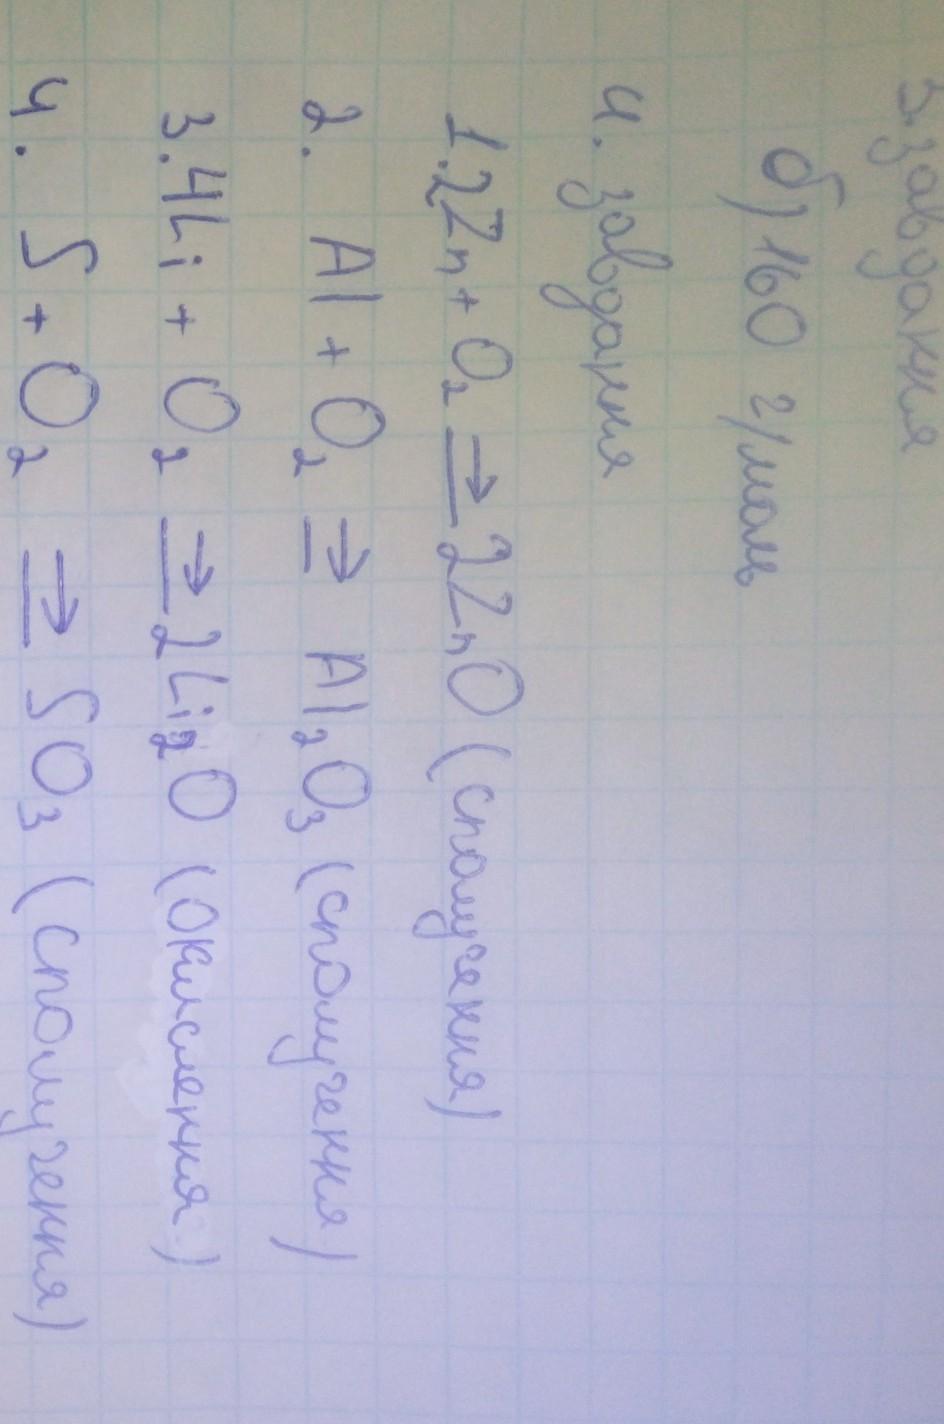 3.завдання
б) 160 г/моль
4. завдання
1. 2Zn + O₂ → 2ZnO (сполучення)
2. Al + O₂ → Al₂O₃ (сполучення)
3. 4Li + O₂ → 2Li₂O (окислення)
4. S + O₂ → SO₃ (сполучення)